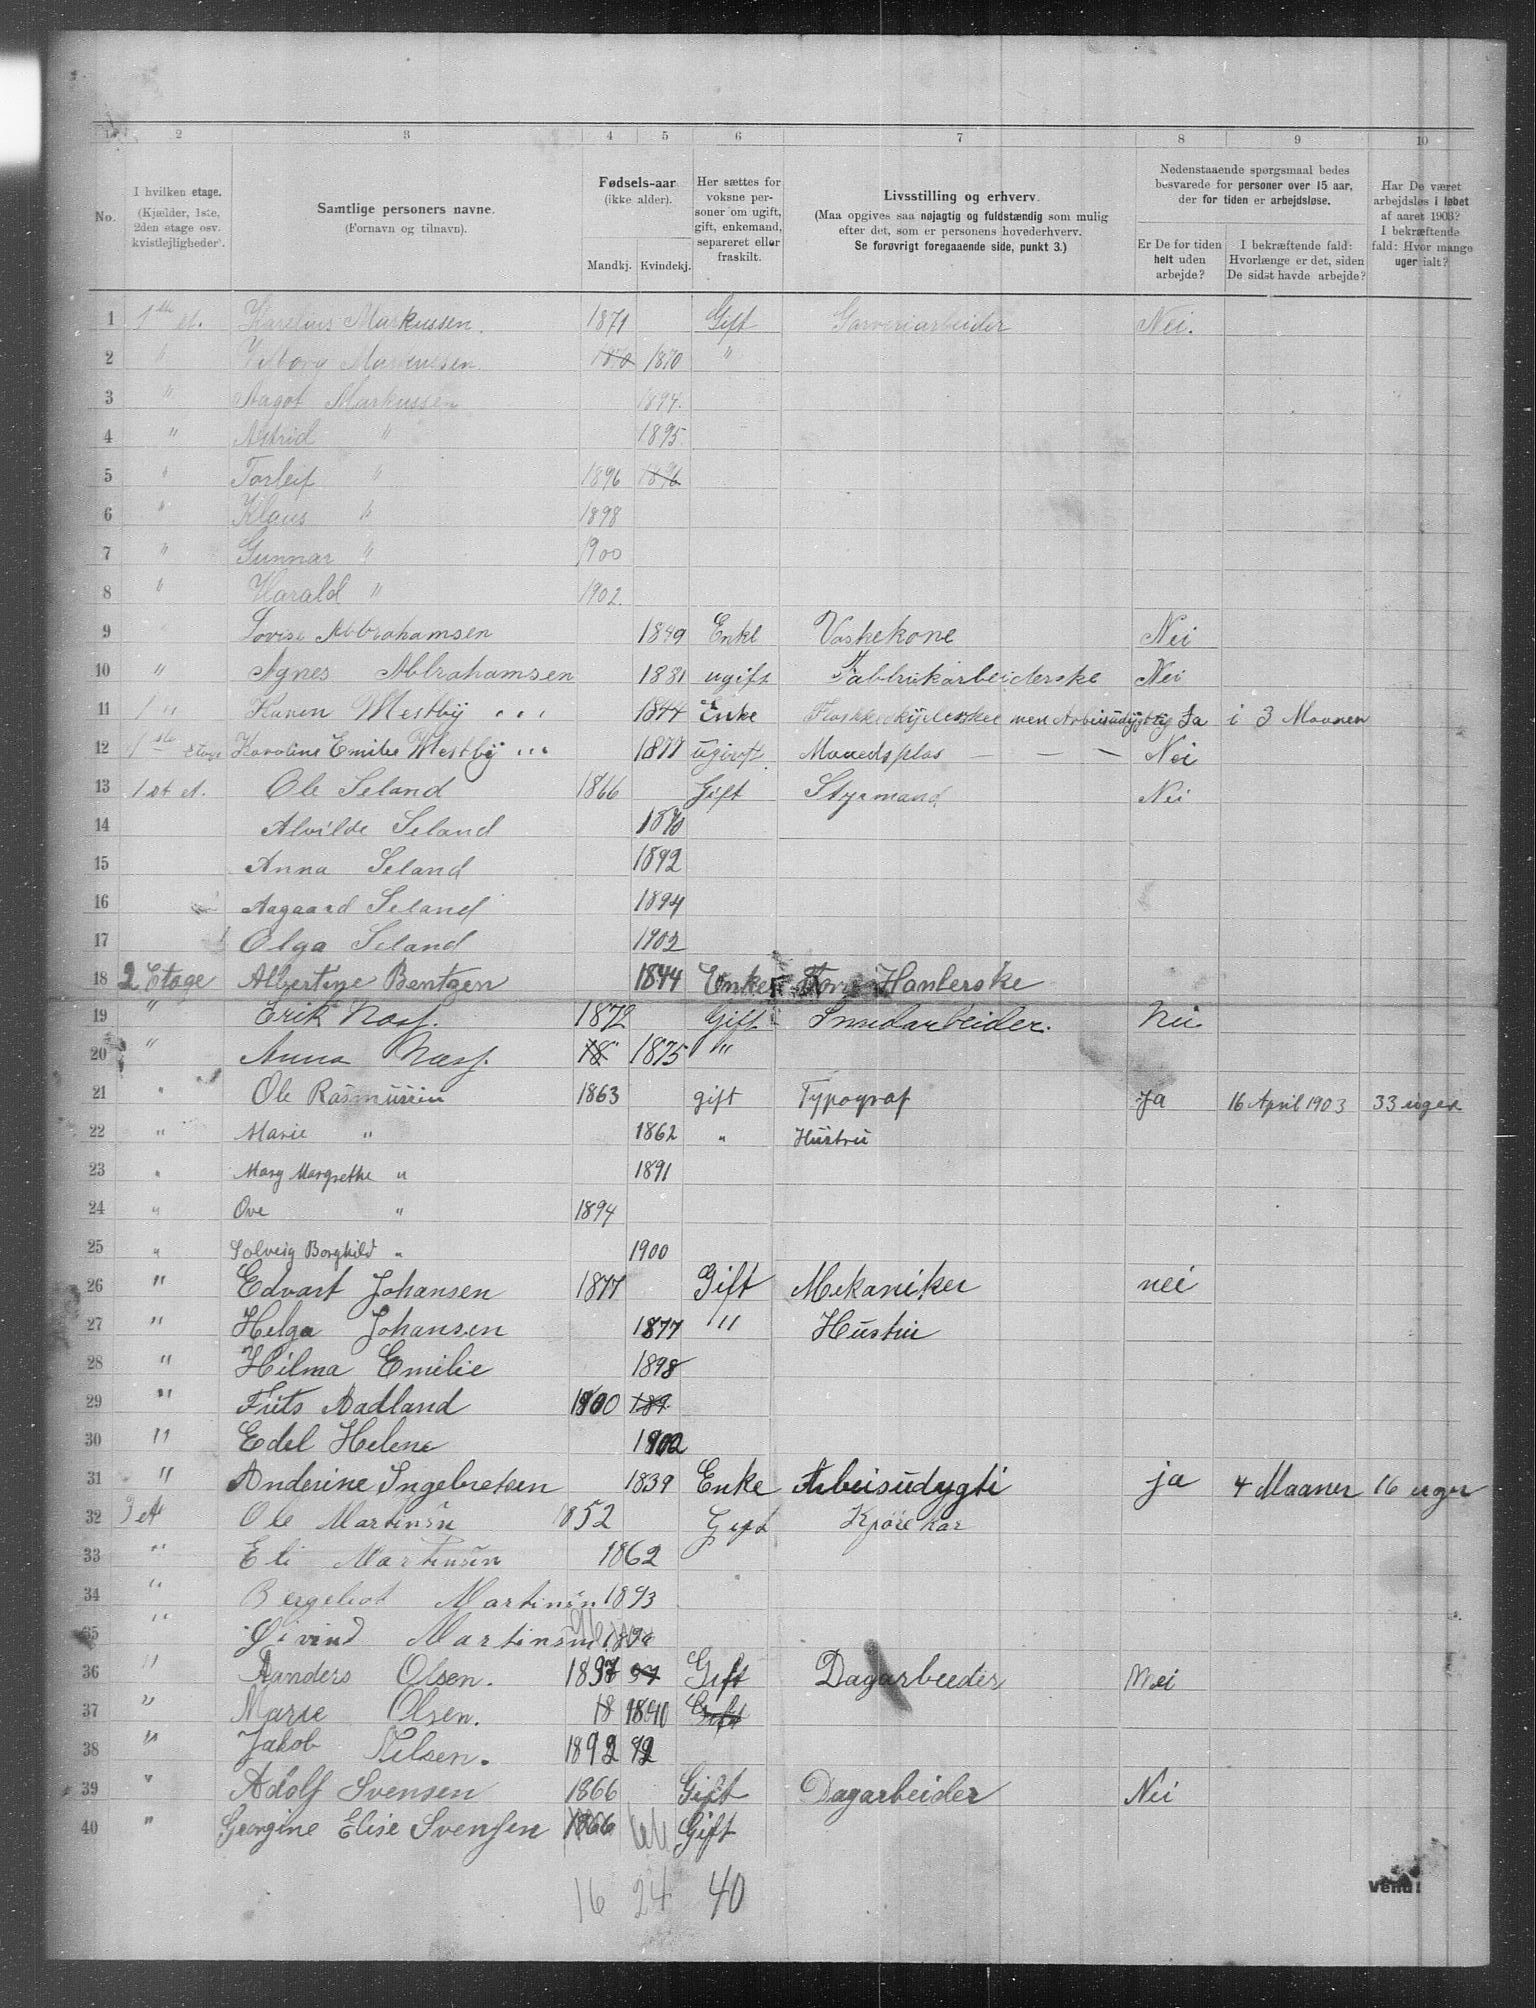 1 2 3 4 5 6 7 8 9 10
No.
I hvilken etage.
(Kjælder, 1ste,
2den etage osv.
kvistlejligheder).
Samtlige personers navne.
(Fornavn og tilnavn).
Fødsels-aar
(ikke alder).
Mandkj. Kvindekj.
Her sættes for
voksne per-
soner om ugift,
gift, enkemand,
separeret eller
fraskilt.
Livsstilling og erhverv.
(Maa opgives saa nøjagtig og fuldstændig som mulig
efter det, som er personens hovederhverv.
Se forøvrigt foregaaende side, punkt 3.)
Nedenstaaende spørgsmaal bedes
besvarede for personer over 15 aar,
der for tiden er arbejdsløse.
Er De for tiden
helt uden
arbejde?
I bekræftende fald:
Hvorlænge er det, siden
De sidst havde arbejde?
Har De været
arbejdsløs i løbet
af aaret 1903?
I bekræftende
fald: Hvor mange
uger ialt?
1 1ste et. Karelius Markussen. 1871 Gift Garveriarbeider Nei.
2 " Markussen. 1870 1870 "
3 " Aagot Markussen 1894.
4 " Astrid " 1895
5 " Torleif " 1896 1896
6 " Klaus " 1898
7 " Gunnar " 1900
8 " Harald " 1902.
9 " Lovise Abbrahamsen 1849 Enke Vaskekone Nei
10 " Agnes Abbrahamsen 1881 ugift Fabbrikarbeiderske Nei
11 1 " Karen Westby 1844 Enke men Arbeisudygtig Ja i 3 Maanen
12 1ste Etage Karoline Emilie Westby 1877 ugivt Maanedsplas — — — Nei
13 1st et. Ole Seland 1866 Gift Styrmand. Nei
14 Alvilde Seland 1870
15 Anna Seland 1892
16 Aagaard Seland 1894
17 Olga Seland 1902
18 2 Etage Albertine Bentzen 1844 Enke Hanlerske
19 " Erik Næss. 1872 Gift Smedarbeider. Nei
20 " Anna Næss. 18 1875 "
21 " Ole Rasmussen 1863 gift Typograf Ja 16 April 1903 33 uger
22 " Marie " 1862 " Hustru
23 " Mary Margrethe " 1891
24 " Ove " 1894
25 " Solveig Borghild " 1900
26 " Edvart Johansen 1877 Gift Mekaniker nei
27 " Helga Johansen 1877 " Hustru
28 " Hilma Emilie 1898
29 " Frits Aadland 1900 189
30 " Edel Helene 1902
31 " Anderine Ingebretsen 1839 Enke Arbeisudygti ja 4 Maaner 16 uger
32 Ole Martinsen 1852 Gift Kjørekar
33 " Eli Martinsen 1862
34 " Bergliot Martinsen 1893
35 " Øivind Martinsen
36 " Aanders Olsen. 1837 37 Gift Dagarbeeder Nei
37 " Marie Olsen. 18 1840 Gift
38 " Jakob Nilsen. 1892 92
39 " Adolf Svensen 1866 Gift Dagarbeider Nei
40 " Georgine Elise Svensen 1866 66 Gift
16 24 40
Vend!